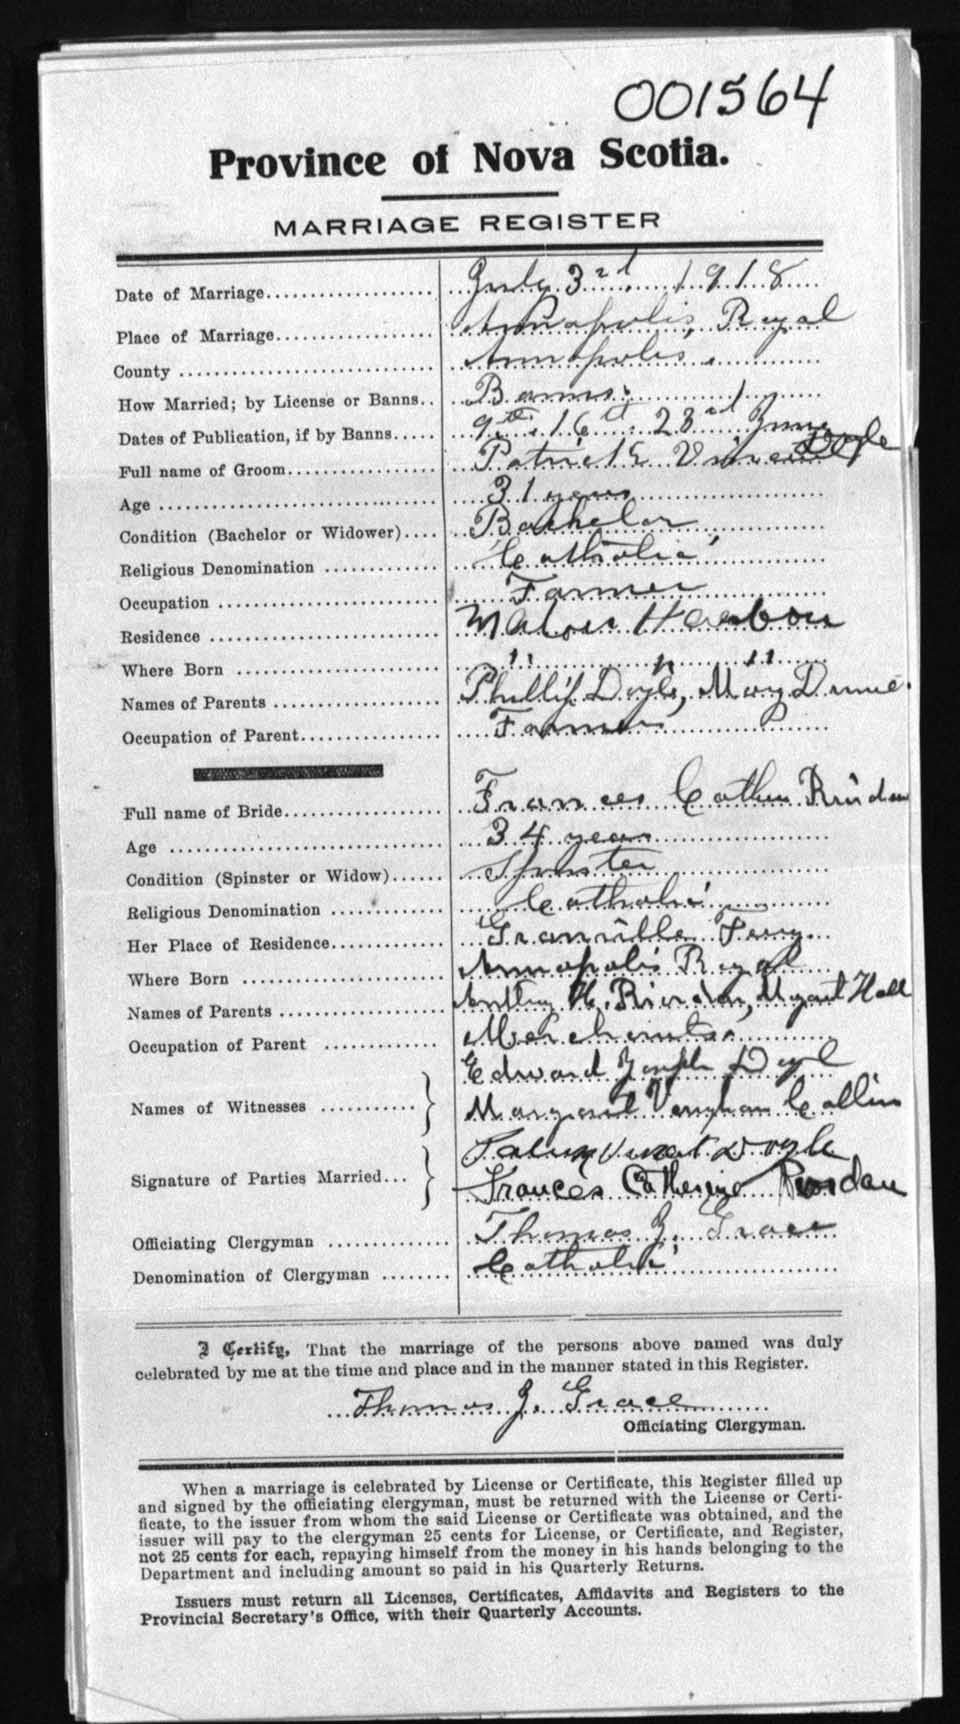 001564
Province of Nova Scotia.
MARRIAGE REGISTER
Date of Marriage July 3rd. 1918
Place of Marriage Annapolis, Royal
County Annapolis.
How Married; by License or Banns.. Banns.
Dates of Publication, if by Banns..... 9th. 16th. 23rd June
Full name of Groom Patrick Vincent Doyle
Age 31 years
Condition (Bachelor or Widower).... Bachelor
Religious Denomination Catholic
Occupation Farmer
Residence Harbour
Where Born " " "
Names of Parents Phillip Doyle, Mary
Occupation of Parent Farmer
Full name of Bride Frances Riordan
Age 34 years
Condition (Spinster or Widow)...... Spinster
Religious Denomination Catholic
Her Place of Residence Granville Ferry.
Where Born Annapolis Royal
Names of Parents H. Riordan, Hall
Occupation of Parent
Names of Witnesses Edward Joseph
Margaret Collins
Signature of Parties Married... Doyle
Frances Catherine Riordan
Officiating Clergyman Thomas J. Grace
Denomination of Clergyman Catholic
I Certify, That the marriage of the persons above named was duly
celebrated by me at the time and place and in the manner stated in this Register.
Thomas J. Grace
Officiating Clergyman.
When a marriage is celebrated by License or Certificate, this Register filled up
and signed by the officiating clergyman, must be returned with the License or Certi-
ficate, to the issuer from whom the said License or Certificate was obtained, and the
issuer will pay to the clergyman 25 cents for License, or Certificate, and Register,
not 25 cents for each, repaying himself from the money in his hands belonging to the
Department and including amount so paid in his Quarterly Returns.
Issuers must return all Licenses, Certificates, Affidavits and Registers to the
Provincial Secretary's Office, with their Quarterly Accounts.